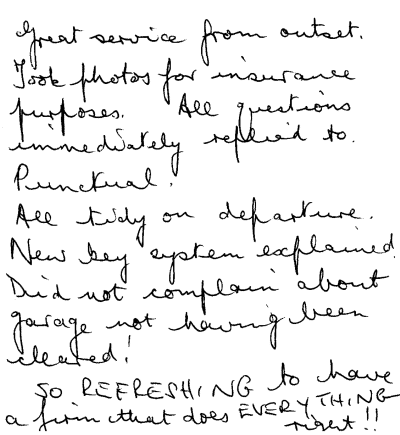 Great service from outset.
Took photos for insurance
purposes. All questions
immediately replied to.
Punctual.
All tidy on departure.
New key system explained.
Did not complain about
garage not having been
cleared!
SO REFRESHING to have
a firm that does EVERYTHING
right!!